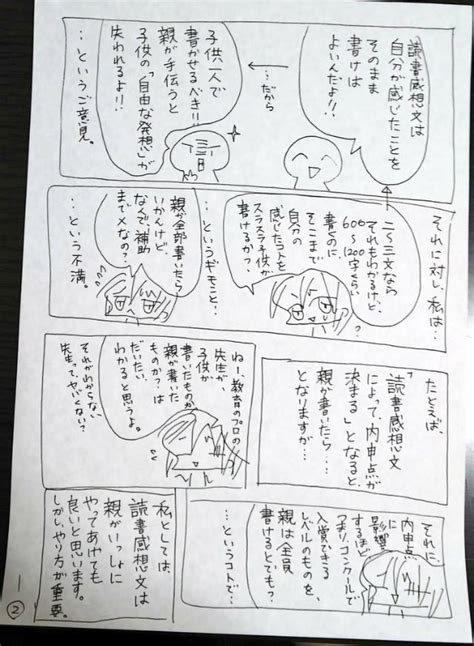 読書感想文は
自分が感じたことを
そのまま
書けば
よいんだよ!!
…だから
子供一人で
書かせるべき!!
親が手伝うと
子供の「自由な発想」が
失われるよ!!
…というご意見。
それに対し、私は…
二〜三文なら
それもわかるけど、
600〜1200字くらい
書くのに、
そこまで
自分の
感じたコトを
スラスラ子供が
書けるか?
…というギモンと…
親が全部書いたら
いかんけど、
なんで、補助
まで×なの?
…という不満。
たとえば、
「読書感想文
によって、内申点が
決まる」となると、
親が書いたら…
となりますが…
ねー教育のプロの
先生が、
子供が
書いたものか
親が書いた
ものか?は
だいたい、
わかると思うよ。
それがわからない
先生って、ヤバくない?
それに、
内申点に
影響
するほど
つまり、コンクールで
入賞できる
レベルのものを、
親は全員
書けるとでも?
…というコトで…
私としては、
読書感想文は
親がいっしょに
やってあげても
良いと思います。
しかし、やり方が重要。
②